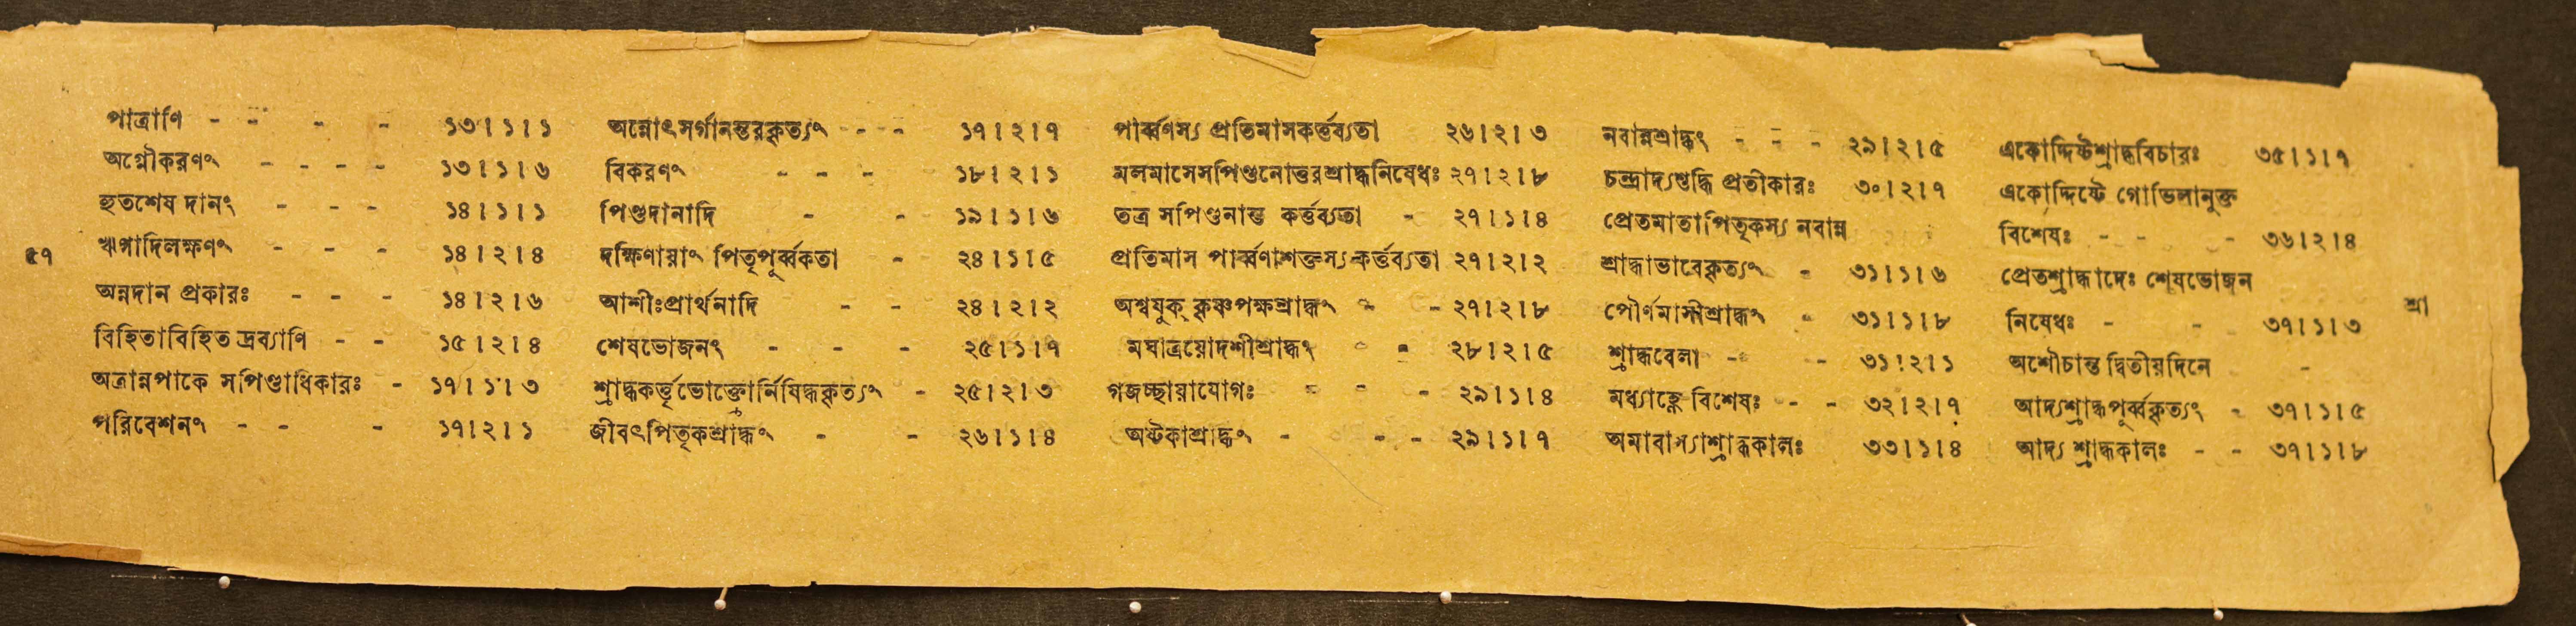 পাত্রাণি - - - - ১৩।১।১
অগ্নৌকরণং - - - - ১৩।১।৬
হুতশেষ দানং - - - ১৪।১।১
ঋগাদিলক্ষণং - - - ১৪।২।৪
অন্নদান প্রকারঃ - - - ১৪।২।৬
বিহিতাবিহিত দ্রব্যাণি - - ১৫।২।৪
অত্রান্নপাকে সপিণ্ডাধিকারঃ - ১৭।১।৩
পরিবেশনং - - - ১৭।২।১
৫৭
অন্নোৎসর্গানন্তরকৃত্যং - - ১৭।২।৭
বিকরণং - - - ১৮।২।১
পিণ্ডদানাদি - - ১৯।১।৬
দক্ষিণায়াং পিতৃপূর্ব্বকতা - ২৪।১।৫
আশীঃপ্রার্থনাদি - - ২৪।২।২
শেষভোজনং - - - ২৫।১।৭
শ্রাদ্ধকর্ত্তৃভোক্ত্রোর্নিষিদ্ধকৃত্যং - ২৫।২।৩
জীবৎপিতৃকশ্রাদ্ধং - - ২৬।১।৪
পার্ব্বণস্য প্রতিমাসকর্ত্তব্যতা ২৬।২।৩
মলমাসেসপিণ্ডনোত্তরশ্রাদ্ধনিষেধঃ ২৭।২।৮
তত্র সপিণ্ডনান্ত কর্ত্তব্যতা - ২৭।১।৪
প্রতিমাস পার্ব্বণাশক্তস্য কর্ত্তব্যতা ২৭।২।২
অশ্বযুক্ কৃষ্ণপক্ষশ্রাদ্ধং - - ২৭।২।৮
মঘাত্রয়োদশীশ্রাদ্ধং - - ২৮।২।৫
গজচ্ছায়াযোগঃ - - - ২৯।১।৪
অষ্টকাশ্রাদ্ধং - - - ২৯।১।৭
নবান্নশ্রাদ্ধং - - - ২৯।২।৫
চন্দ্রাদ্যশুদ্ধি প্রতীকারঃ ৩০।২।৭
প্রেতমাতাপিতৃকস্য নবান্ন
শ্রাদ্ধাভাবেকৃত্যং - ৩১।১।৬
পৌর্ণমাসীশ্রাদ্ধং - ৩১।১।৮
শ্রাদ্ধবেলা - - ৩১।২।১
মধ্যাহ্নে বিশেষঃ - - ৩২।২।৭
অমাবাস্যাশ্রাদ্ধকালঃ ৩৩।১।৪
একোদ্দিষ্টশ্রাদ্ধবিচারঃ ৩৫।১।৭
একোদ্দিষ্টে গোভিলানুক্ত
বিশেষঃ - - - ৩৬।২।৪
প্রেতশ্রাদ্ধাদেঃ শেষভোজন
নিষেধঃ - - ৩৭।১।৩
অশৌচান্ত দ্বিতীয়দিনে -
আদ্যশ্রাদ্ধপূর্ব্বকৃত্যং - ৩৭।১।৫
আদ্য শ্রাদ্ধকালঃ - - ৩৭।১।৮
শ্রা